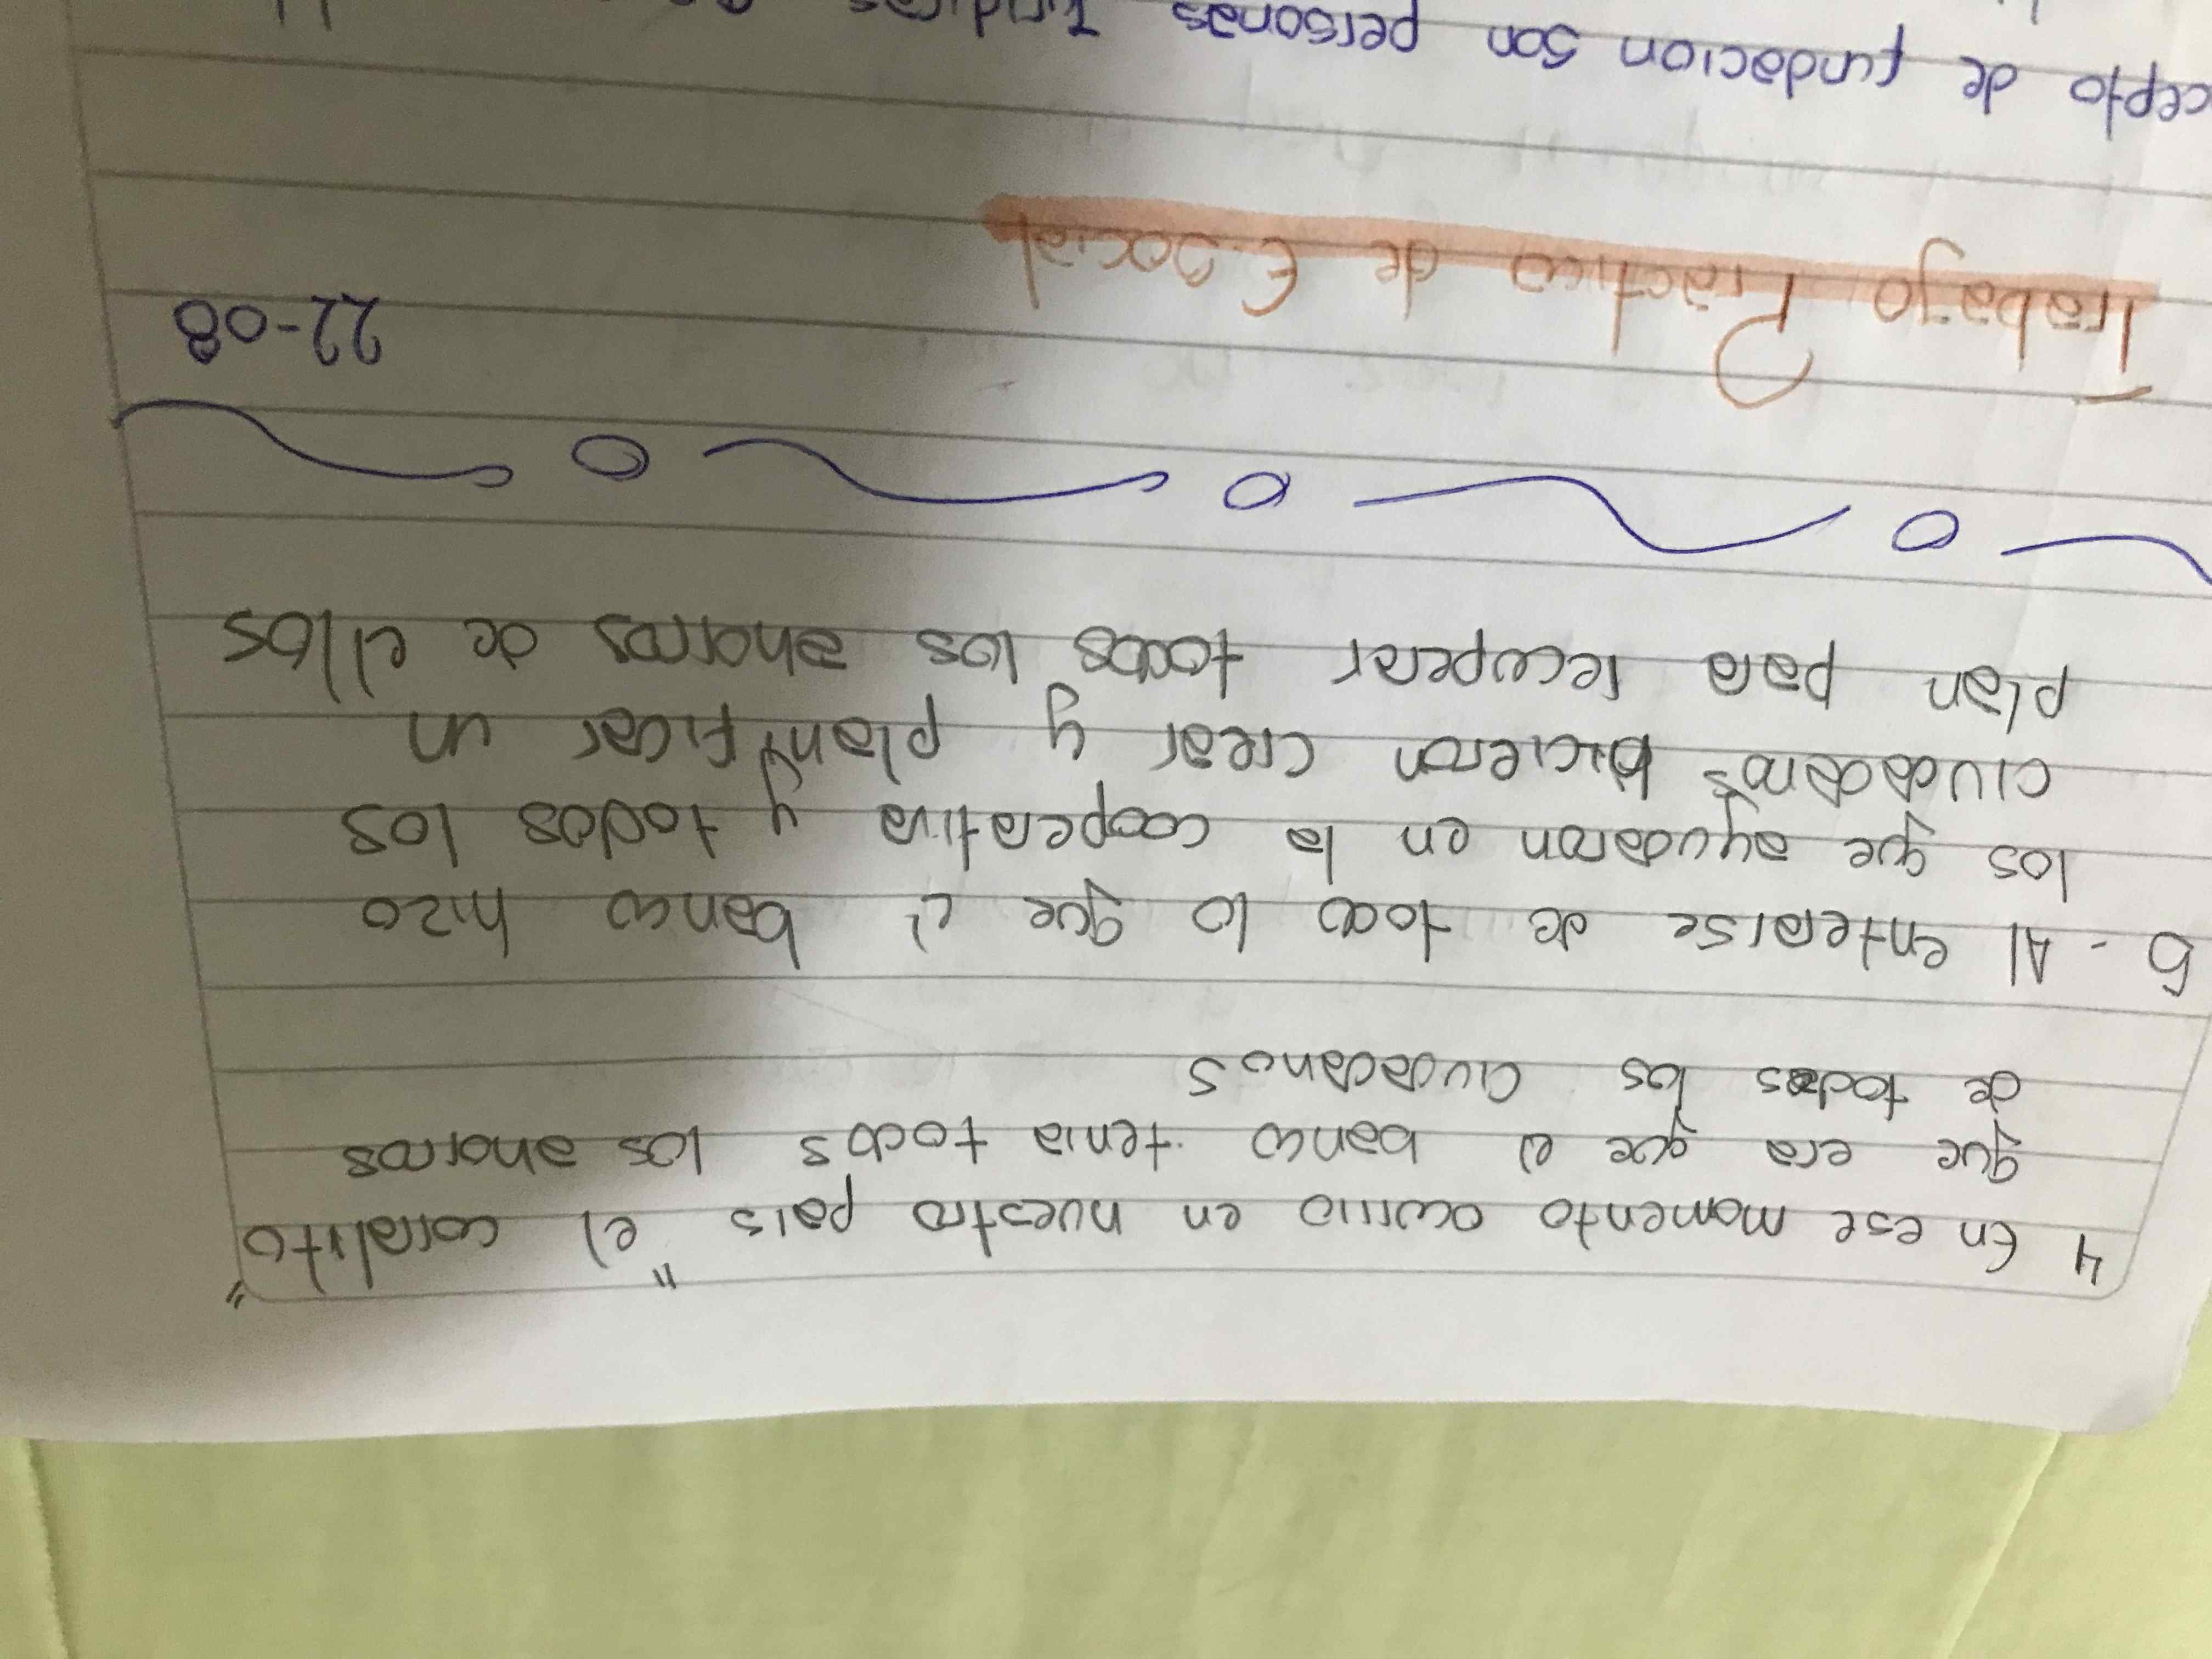 4 En ese momento ocurrio en nuestro pais "el corralito"
que era que el banco tenia todos los ahorros
de todos los ciudadanos
5 - Al enterarse de todo lo que el banco hizo
los que ayudaron en la cooperativa y todos los
ciudadanos hicieron crear y planificar un
plan para recuperar todos los ahorros de ellos
22-08
Trabajo Práctico de E. social
cepto de fundacion son personas Juridicas